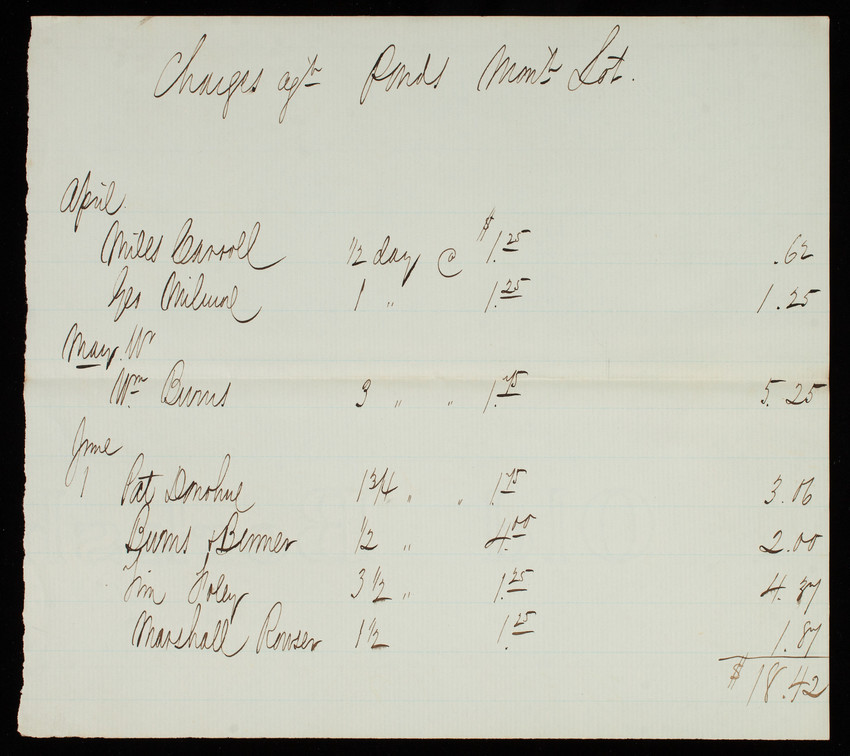 Charges agst Ponds Mont Lot.
April
Miles Carroll 1/2 day @ $1.25 .62
Geo Milune 1 " 1.25 1.25
May. Wm
Wm Burns 3 " " 1.75 5.25
June
1 Pat Donohue 1 3/4 " " 1.75 3.06
Burns & Benner 1/2 " 4.00 2.00
Tim Foley 3 1/2 " 1.25 4.37
Marshall Rouser 1 1/2 1.25 1.87
$18.42